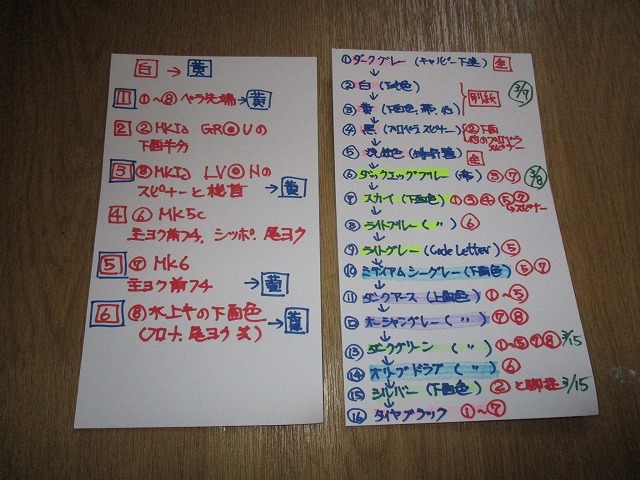 白 → 黄
1 ①〜⑧ ペラ先端 → 黄
2 ② MKIa GR◎Uの
下面半分
3 ③ MKIa LV◎Nの
スピナーと機首 → 黄
4 ⑥ MK5c
主ヨク前フチ, シッポ, 尾ヨク
5 ⑦ Mk6
主ヨク前フチ → 黄
6 ⑧ 水上キの下面色
(フロート, 尾ヨク → 黄
① ダークグレー (キャノピー下塗) 全
② 白 (下地色)
③ 黄 (下面色, 帯, 他)
別紙 3/7
④ 黒 (プロペラ スピナー) ② 下面
他のプロペラ
スピナー
⑤ 機内色 全
⑥ ダックエッグブルー (帯) ③ ⑦ 3/8
⑦ スカイ (下面色) ① ③ ④ ⑤ ⑦
スピナー
⑧ ライトブルー ( 〃 ) ⑥
⑨ ライトグレー (Code Letter) ⑤
⑩ ミディアムシーグレー (下面色) ⑤ ⑦
⑪ ダークアース (上面色) ①〜⑤
⑫ オーシャングレー ( 〃 ) ⑦ ⑧
⑬ ダークグリーン ( 〃 ) ①〜⑤ ⑦ ⑧ 3/15
⑭ オリーブドラブ ( 〃 ) ⑥
⑮ シルバー (下面色) ② と脚柱 3/15
⑯ タイヤブラック ①〜⑦